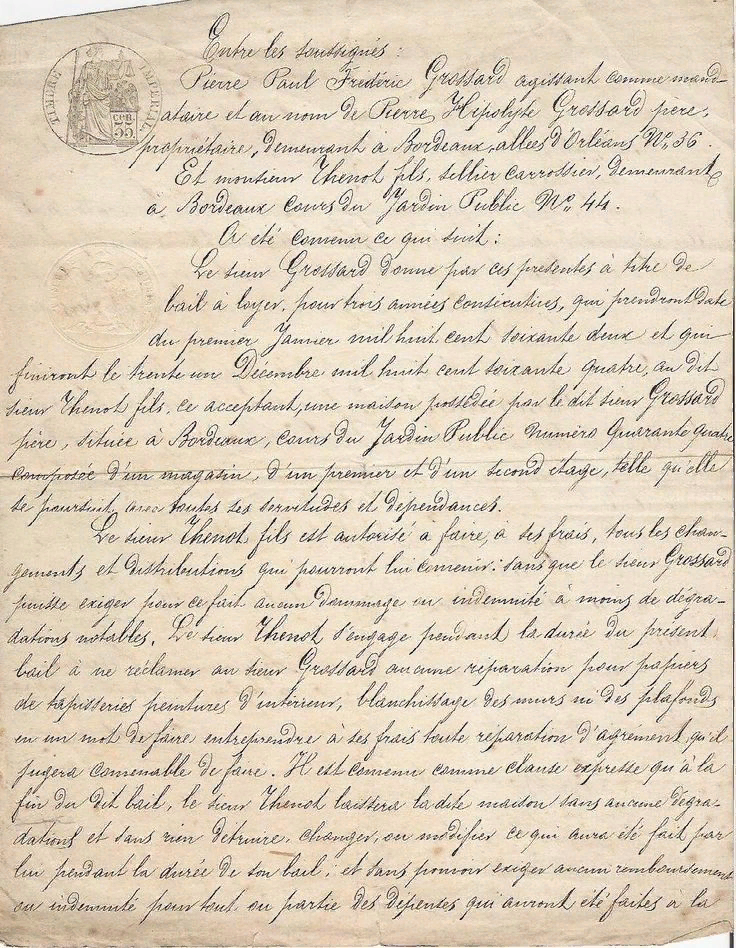 TIMBRE IMPÉRIAL
COP.
55
Entre les soussignés :
Pierre Paul Fredéric Grossard agissant comme mand-
ataire et au nom de Pierre Hipolyte Grossard père,
propriétaire, demeurant à Bordeaux, allées d'Orléans No. 36.
Et monsieur Thenot fils, sellier carrossier, demeurant
à Bordeaux cours du Jardin Public No. 44.
A été convenu ce qui suit :
Le sieur Grossard donne par ces presentes à titre de
bail à loyer, pour trois années consécutives, qui prendront date
du premier Janvier mil huit cent soixante deux et qui
finiront le trente un Décembre mil huit cent soixante quatre, au dit
sieur Thenot fils, ce acceptant, une maison possédée par le dit sieur Grossard
père, située à Bordeaux, cours du Jardin Public numéro Quarante Quatre
composée d'un magasin, d'un premier et d'un second étage, telle qu'elle
se poursuit, avec toutes ses servitudes et dépendances.
Le sieur Thenot fils est autorisé à faire, à ses frais, tous les chan-
gements et distributions qui pourront lui convenir : sans que le sieur Grossard
puisse exiger pour ce fait aucun dommage ou indemnité à moins de dégra-
dations notables. Le sieur Thenot s'engage pendant la durée du présent
bail à ne réclamer au sieur Grossard aucune reparation pour papiers
de tapisseries peintures d'intérieur, blanchissage des murs ni des plafonds
en un mot de faire entreprendre à ses frais toute réparation d'agrément, qu'il
jugera convenable de faire. Il est convenu comme clause expresse qu'à la
fin du dit bail, le sieur Thenot laissera la dite maison sans aucune dégra-
dations et sans rien détruire, changer, ou modifier ce qui aura été fait par
lui pendant la durée de son bail ; et sans pouvoir exiger aucun remboursement
ou indemnité pour tout ou partie des dépenses qui auront été faites à la